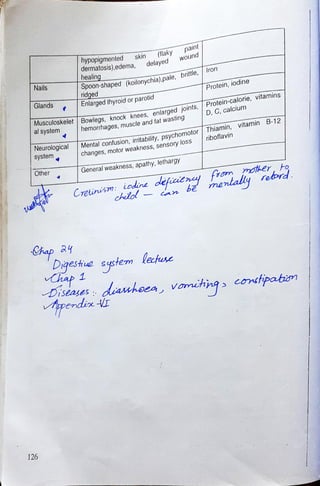 hypopigmented skin (flaky paint
dermatosis),edema, delayed wound
healing
Nails
Spoon-shaped (koilonychia),pale, brittle,
ridged
Iron
Glands
Enlarged thyroid or parotid
Protein, iodine
Musculoskelet
al system
Bowlegs, knock knees, enlarged joints,
hemorrhages, muscle and fat wasting
Protein-calorie, vitamins
D, C, calcium
Neurological
system
Mental confusion, irritability, psychomotor
changes, motor weakness, sensory loss
Thiamin, vitamin B-12
riboflavin
Other
General weakness, apathy, lethargy
Cretinism: iodine deficiency from mother to
child — can be mentally retard.
Chap 24
Digestive system lecture
Chap 1
Diseases: diarrhoea, vomiting, constipation
Appendix VI
126